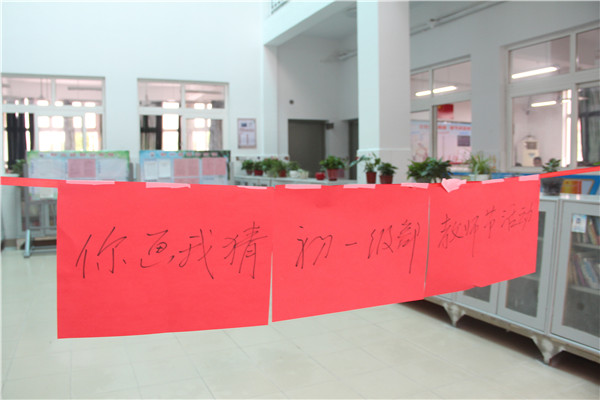 你画我猜 初一级部 教师节活动